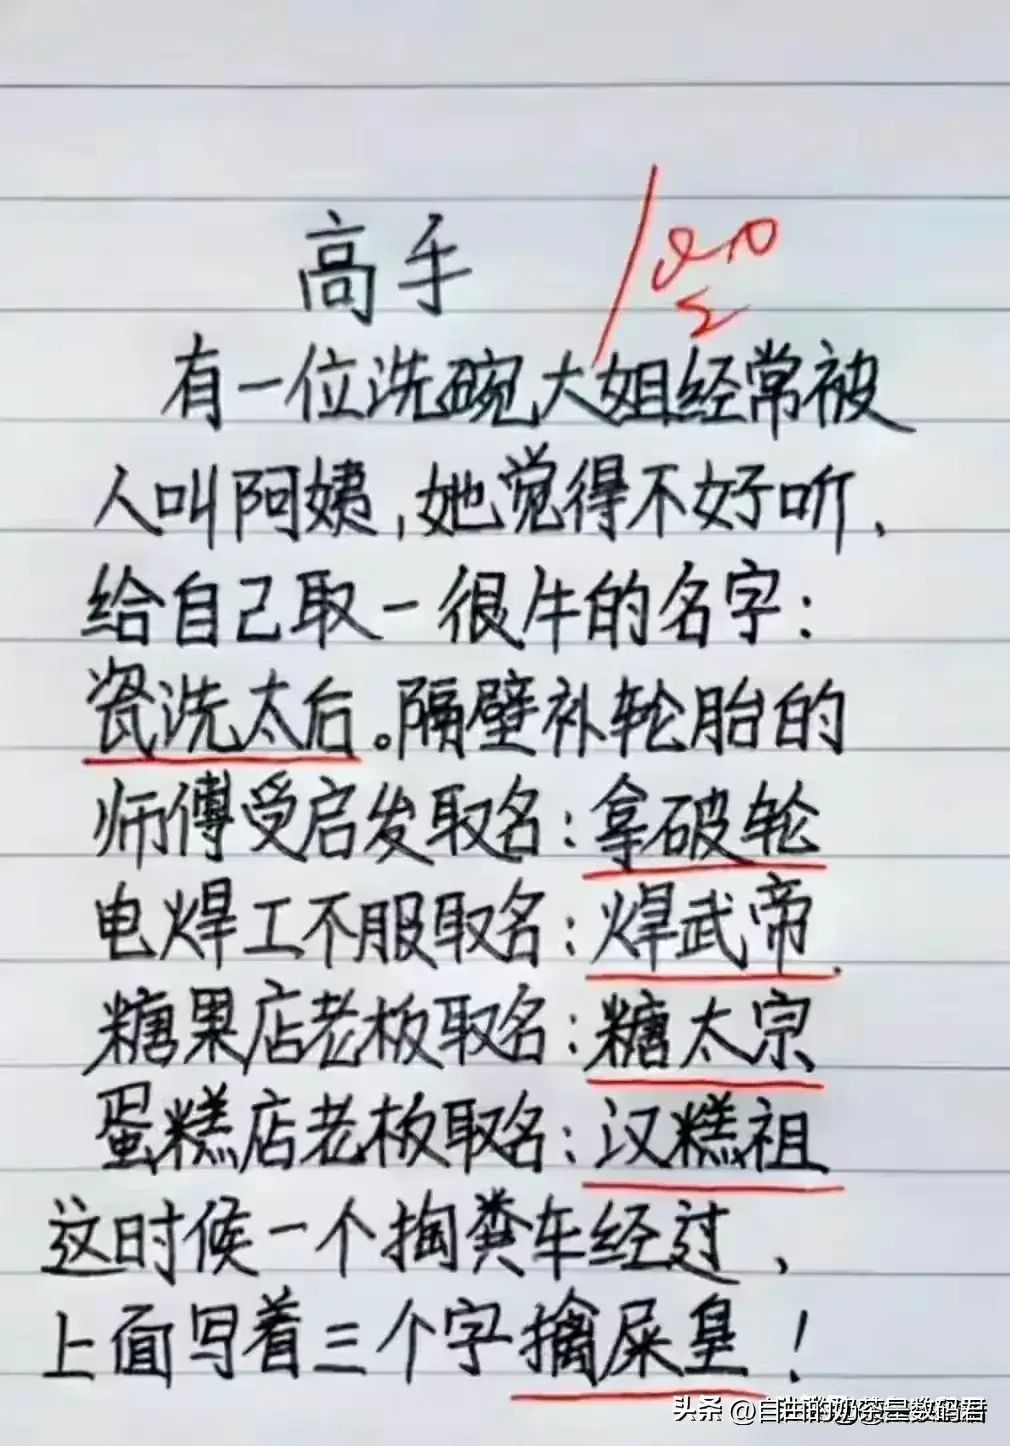 高手
100
有一位洗碗大姐经常被
人叫阿姨,她觉得不好听、
给自己取一很牛的名字:
瓷洗太后。隔壁补轮胎的
师傅受启发取名:拿破轮
电焊工不服取名:焊武帝.
糖果店老板取名:糖太宗
蛋糕店老板取名:汉糕祖
这时候一个掏粪车经过、
上面写着三个字擒屎皇!
头条 @自